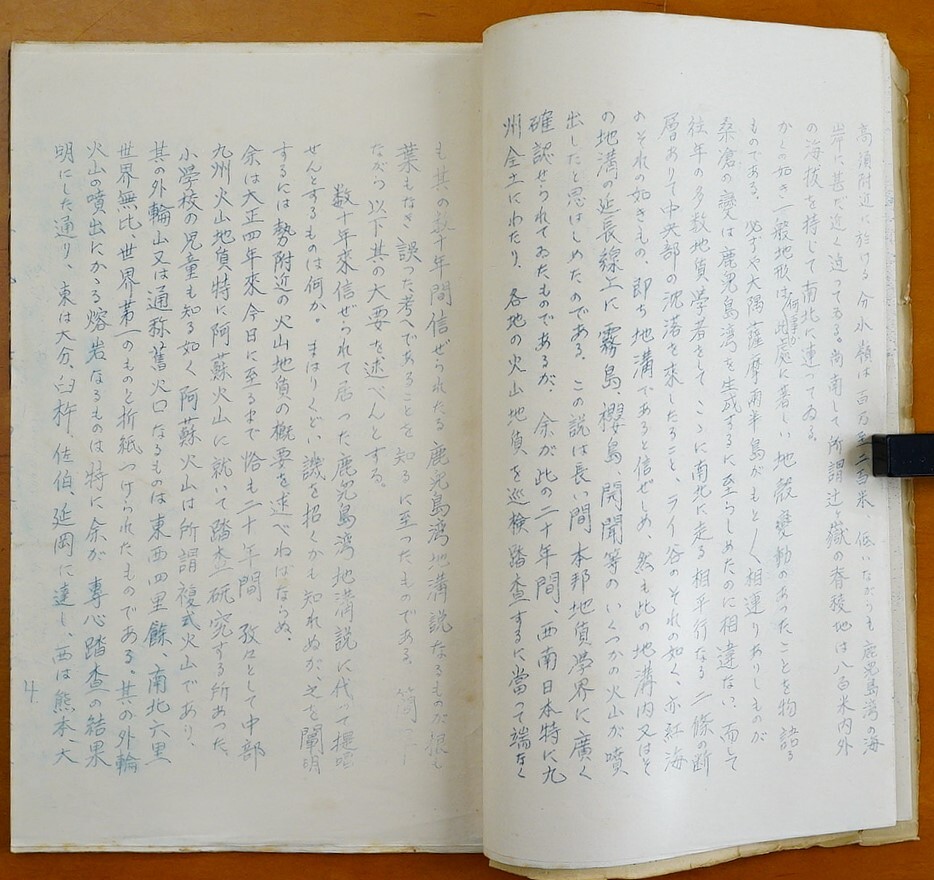 高須附近に於ける分水嶺は百万至二百米、低いながらも鹿児島湾の海
岸に甚だ近く迫ってゐる。尚南して所謂辻ヶ嶽の脊稜地は八百米内外
の海抜を持して南北に連ってゐる。
かくの如き一般地形は何事か此処に著しい地殻変動のあったことを物語る
ものである。必ずや大隅薩摩両半島がもと〳〵相連りありしものが
桑滄の変は鹿児島湾を生成するに至らしめたのに相違ない、而して
往年の多数地質学者をして、こゝに南北に走る相平行なる二條の断
層ありて中央部の沈落を来したること、ライン谷のそれの如く、亦紅海
のそれの如きもの、即ち地溝であると信ぜしめ、然も此の地溝内又はそ
の地溝の延長線上に霧島、櫻島、開聞等のいくつかの火山が噴
出したと思はしめたのである。この説は長い間本邦地質学界に廣く
確認せられてゐたものであるが、余が此の二十年間、西南日本特に九
州全土にわたり、各地の火山地質を巡検踏査するに当って端なく
も其の数十年間信ぜられたる鹿児島湾地溝説なるものが根も
葉もなき誤った考へであることを知るに至ったものである。簡
ながら以下其の大要を述べんとする。
数十年来信ぜられて居った鹿児島湾地溝説に代って提唱
せんとするものは何か。まはりくどい譏を招くかも知れぬが、之を闡明
するには勢附近の火山地質の概要を述べねばならぬ。
余は大正四年来今日に至るまで恰も二十年間 孜々として中部
九州火山地質特に阿蘇火山に就いて踏査研究する所あった。
小学校の児童も知る如く阿蘇火山は所謂複式火山であり、
其の外輪山又は通称舊火口なるものは東西四里餘、南北六里
世界無比、世界第一のものと折紙つけられたものである。其の外輪
火山の噴出にかゝる熔岩なるものは特に余が専心踏査の結果
明にした通り、東は大分、臼杵、佐伯、延岡に達し、西は熊本、大
4